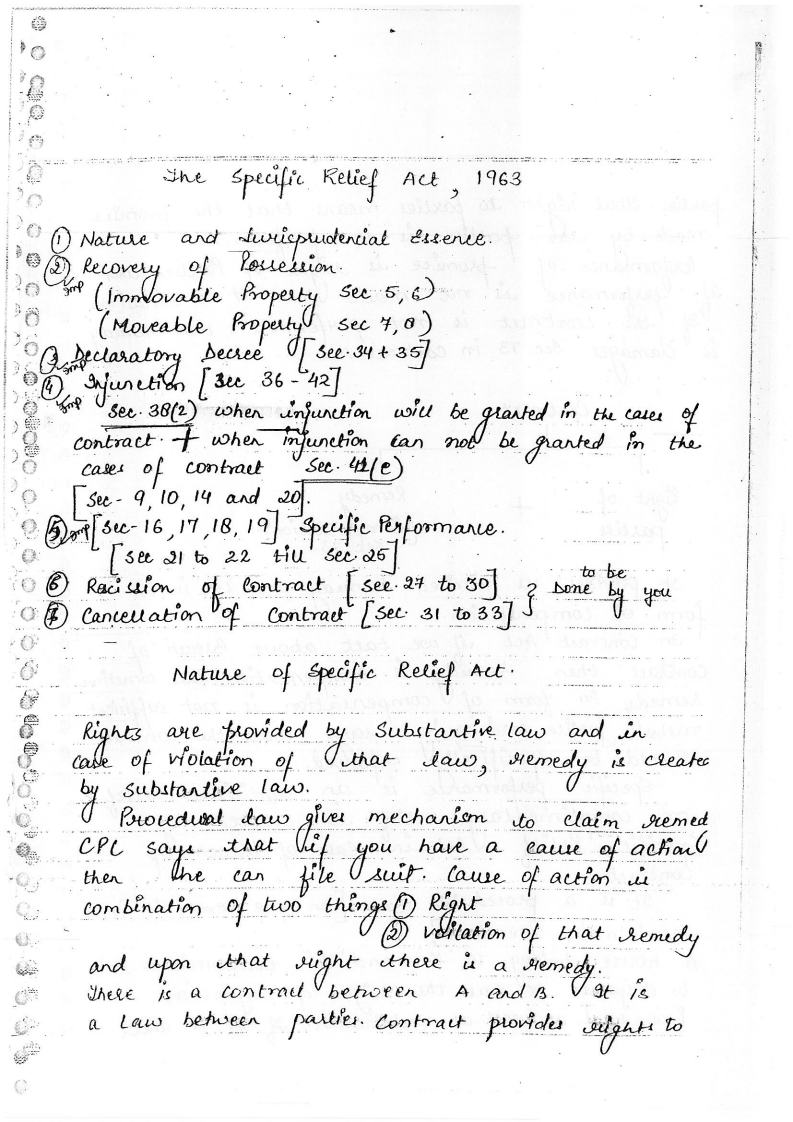 The Specific Relief Act, 1963
① Nature and Jurisprudencial Essence.
② Recovery of Possession.
Imp (Immovable Property Sec 5, 6)
(Moveable Property Sec 7, 8)
③ Declaratory Decree [Sec. 34 + 35]
Imp
④ Injunction [Sec 36 - 42]
Imp Sec. 38(2) when injunction will be granted in the cases of
contract. + when injunction can not be granted in the
cases of contract Sec. 41(e)
[Sec - 9, 10, 14 and 20].
⑤ Imp [Sec - 16, 17, 18, 19] Specific Performance.
[Sec 21 to 22 till Sec. 25]
⑥ Recission of Contract [Sec. 27 to 30] } to be Done by you
⑦ Cancellation of Contract [Sec. 31 to 33]
Nature of Specific Relief Act.
Rights are provided by Substantive law and in
case of violation of that law, remedy is create
by Substantive law.
Procedural law gives mechanism to claim remed
CPC says that if you have a cause of action
then he can file suit. Cause of action is
combination of two things ① Right
② voilation of that remedy
and upon that right there is a remedy.
There is a contract between A and B. It is
a Law between parties. Contract provides rights to